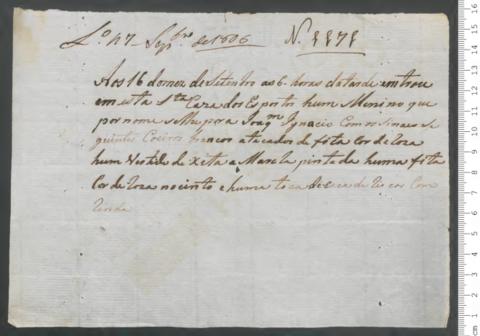 L.º 47 - Sepbrº de 1806 N. 1171
Aos 16 do mez de Setenbro as 6 horas da tarde entrou
em esta Sta Caza dos Espostos hum Menino que
por nome se lhe pora Joaqm Ignacio Com os Sinaes se
guintes Coeiros brancos atacados de fita Cor de Roza
hum Vestido de Xita a Marela pintada huma fita
Cor de Roza no cinto e huma toca de caca de Riscas Com
Renda
cm 1 2 3 4 5 6 7 8 9 10 11 12 13 14 15 16